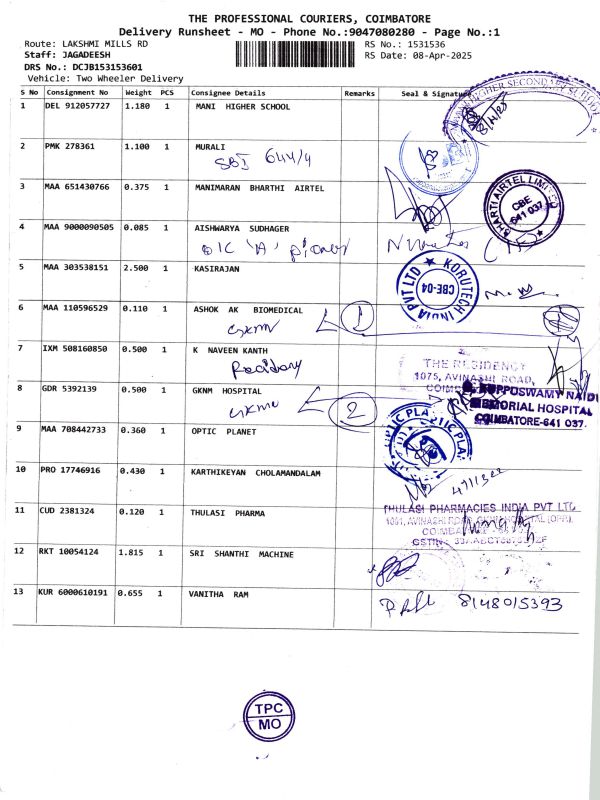 THE PROFESSIONAL COURIERS, COIMBATORE
Delivery Runsheet - MO - Phone No.:9047080280 - Page No.:1
Route: LAKSHMI MILLS RD
RS No.: 1531536
Staff: JAGADEESH
RS Date: 08-Apr-2025
DRS No.: DCJB153153601
Vehicle: Two Wheeler Delivery
S No Consignment No Weight PCS Consignee Details Remarks Seal & Signature
1 DEL 912057727 1.180 1 MANI HIGHER SCHOOL
HIGHER SECONDARY SCHOOL
8/4/25
2 PMK 278361 1.100 1 MURALI
SBI 644/4
3 MAA 651430766 0.375 1 MANIMARAN BHARTHI AIRTEL
BHARTI AIRTEL LIMITED
CBE
641 037
4 MAA 9000090505 0.085 1 AISHWARYA SUDHAGER
5 MAA 303538151 2.500 1 KASIRAJAN
KORUTECH INDIA PVT LTD
CBE-04
6 MAA 110596529 0.110 1 ASHOK AK BIOMEDICAL
GKNM
1
7 IXM 508160850 0.500 1 K NAVEEN KANTH
THE RESIDENCY
1075, AVINASHI ROAD,
8 GDR 5392139 0.500 1 GKNM HOSPITAL
GKNM
2
KUPPUSWAMY NAIDU
MEMORIAL HOSPITAL
COIMBATORE-641 037.
9 MAA 708442733 0.360 1 OPTIC PLANET
OPTIC PLA
10 PRO 17746916 0.430 1 KARTHIKEYAN CHOLAMANDALAM
11 CUD 2381324 0.120 1 THULASI PHARMA
THULASI PHARMACIES INDIA PVT LTD
12 RKT 10054124 1.815 1 SRI SHANTHI MACHINE
13 KUR 6000610191 0.655 1 VANITHA RAM
8148015393
TPC
MO